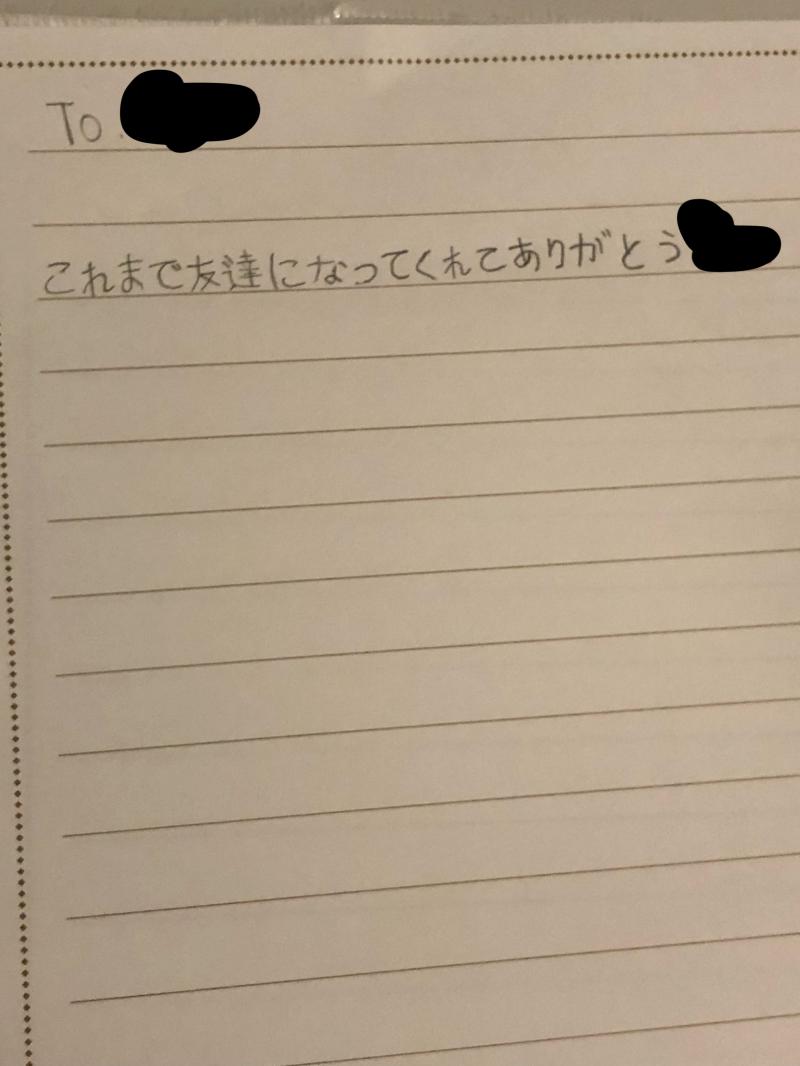 To.
これまで友達になってくれてありがとう